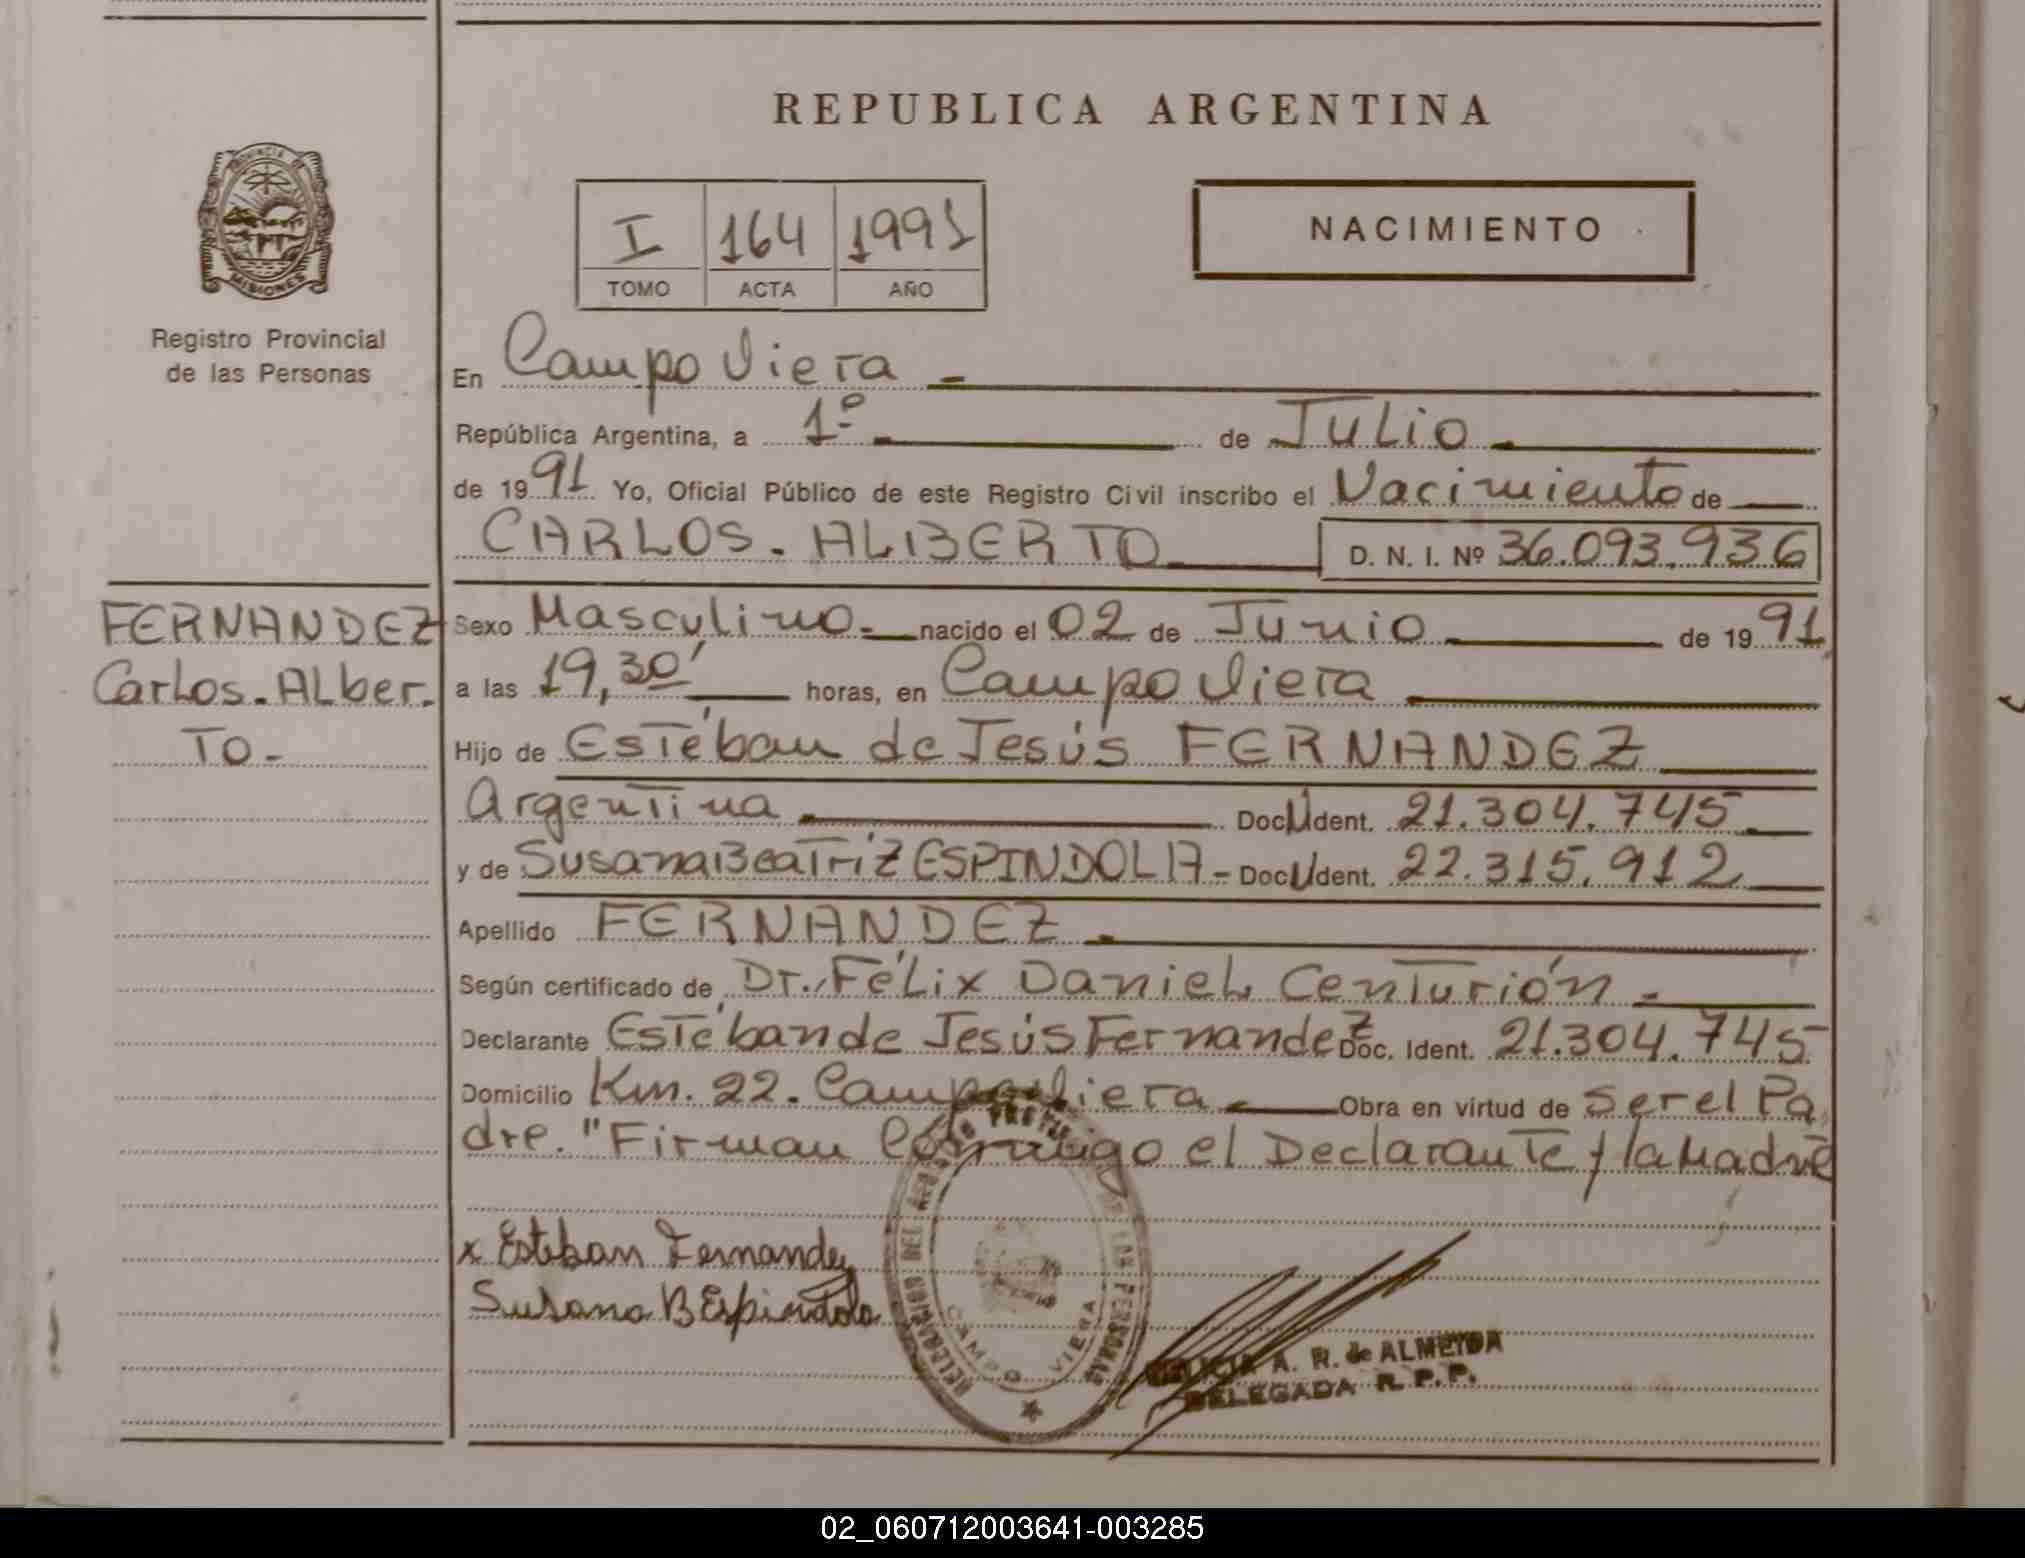 REPUBLICA ARGENTINA
PROVINCIA DE
MISIONES
Registro Provincial
de las Personas
I 164 1991
TOMO ACTA AÑO
NACIMIENTO
En Campo Viera
República Argentina, a 1º de Julio
de 1991 Yo, Oficial Público de este Registro Civil inscribo el Nacimiento de
CARLOS - ALBERTO D. N. I. Nº 36.093.936
FERNANDEZ
Carlos - Alber-
to -
Sexo Masculino - nacido el 02 de Junio de 1991
a las 19,30' horas, en Campo Viera
Hijo de Estéban de Jesús FERNANDEZ
Argentina Doc. Ident. 21.304.745
y de Susana Beatriz ESPINDOLA - Doc. Ident. 22.315.912
Apellido FERNANDEZ
Según certificado de Dr. Félix Daniel Centurión
Declarante Estéban de Jesús Fernandez Doc. Ident. 21.304.745
Domicilio Km. 22 - Campo Viera Obra en virtud de Ser el Pa
dre. "Firman Conmigo el Declarante y la Madre
x Esteban Fernandez
Susana B Espindola
DELEGACION DEL DE LAS PERSONAS
CAMPO VIERA
A. R. de ALMEIDA
DELEGADA R. P. P.
02_060712003641-003285